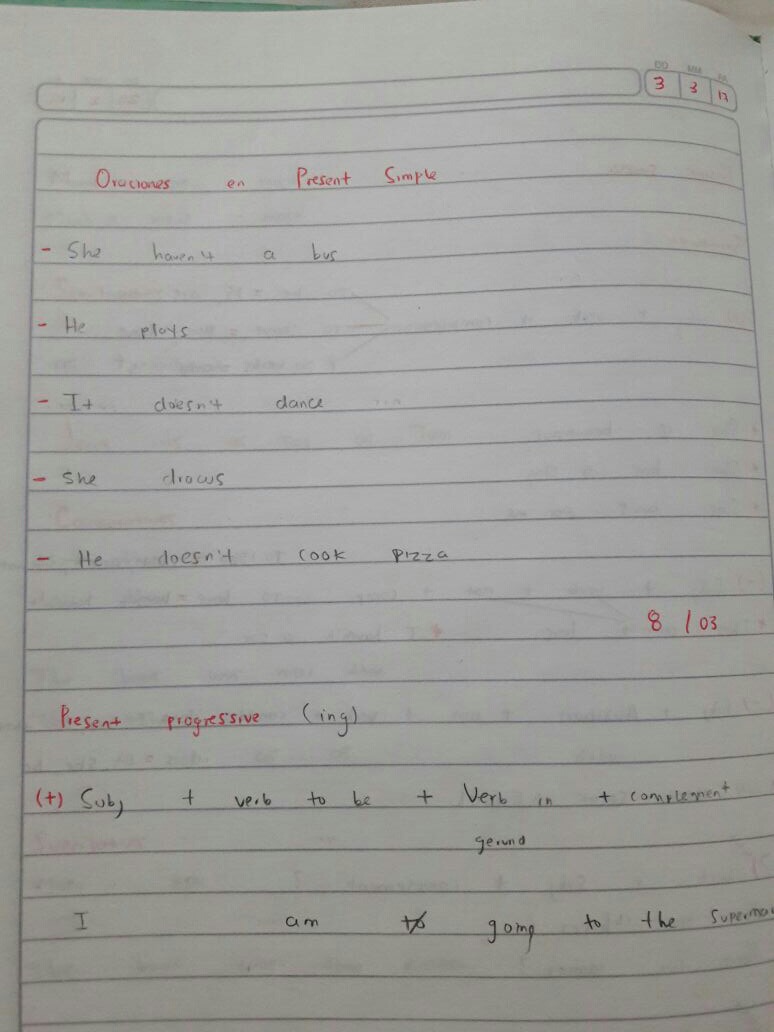 DD MM AA
3 3 17
Oraciones en Present Simple
- She haven't a bus
- He plays
- It doesn't dance
- She draws
- He doesn't cook pizza
8 / 03
Present progressive (ing)
(+) Subj + verb to be + Verb in + complement
gerund
I am going to the Superma